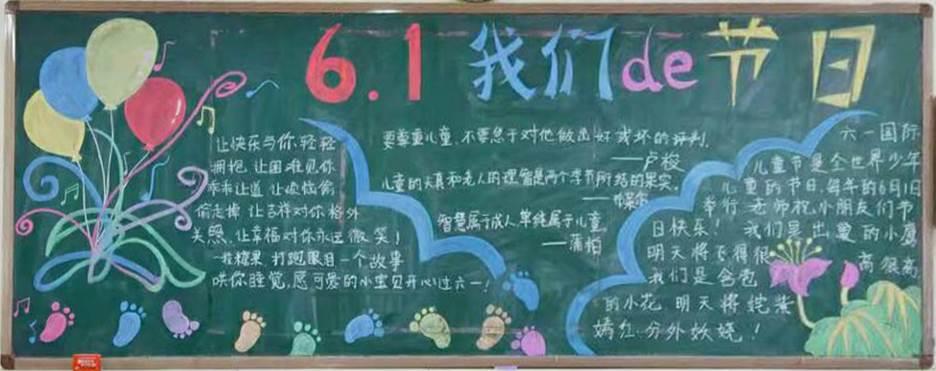 6.1 我们de节日
让快乐与你轻轻
拥抱,让困难见你
乖乖让道,让烦恼偷
偷走掉,让吉祥对你格外
关照,让幸福对你永远微笑!
一粒糖果 打跑眼泪 一个故事
哄你睡觉,愿可爱的小宝贝开心过六一!
要尊重儿童,不要急于对他做出好或坏的评判.
——卢梭
儿童的天真和老人的理智是两个季节所结的果实。
——布莱尔
智慧属于成人,单纯属于儿童
——蒲柏
六一国际
儿童节是全世界少年
儿童的节日,每年的6月1日
举行 老师祝小朋友们节
日快乐! 我们是出巢的小鹰
明天将飞得很 高很高
我们是含苞
的小花 明天将姹紫
嫣红.分外妖娆!